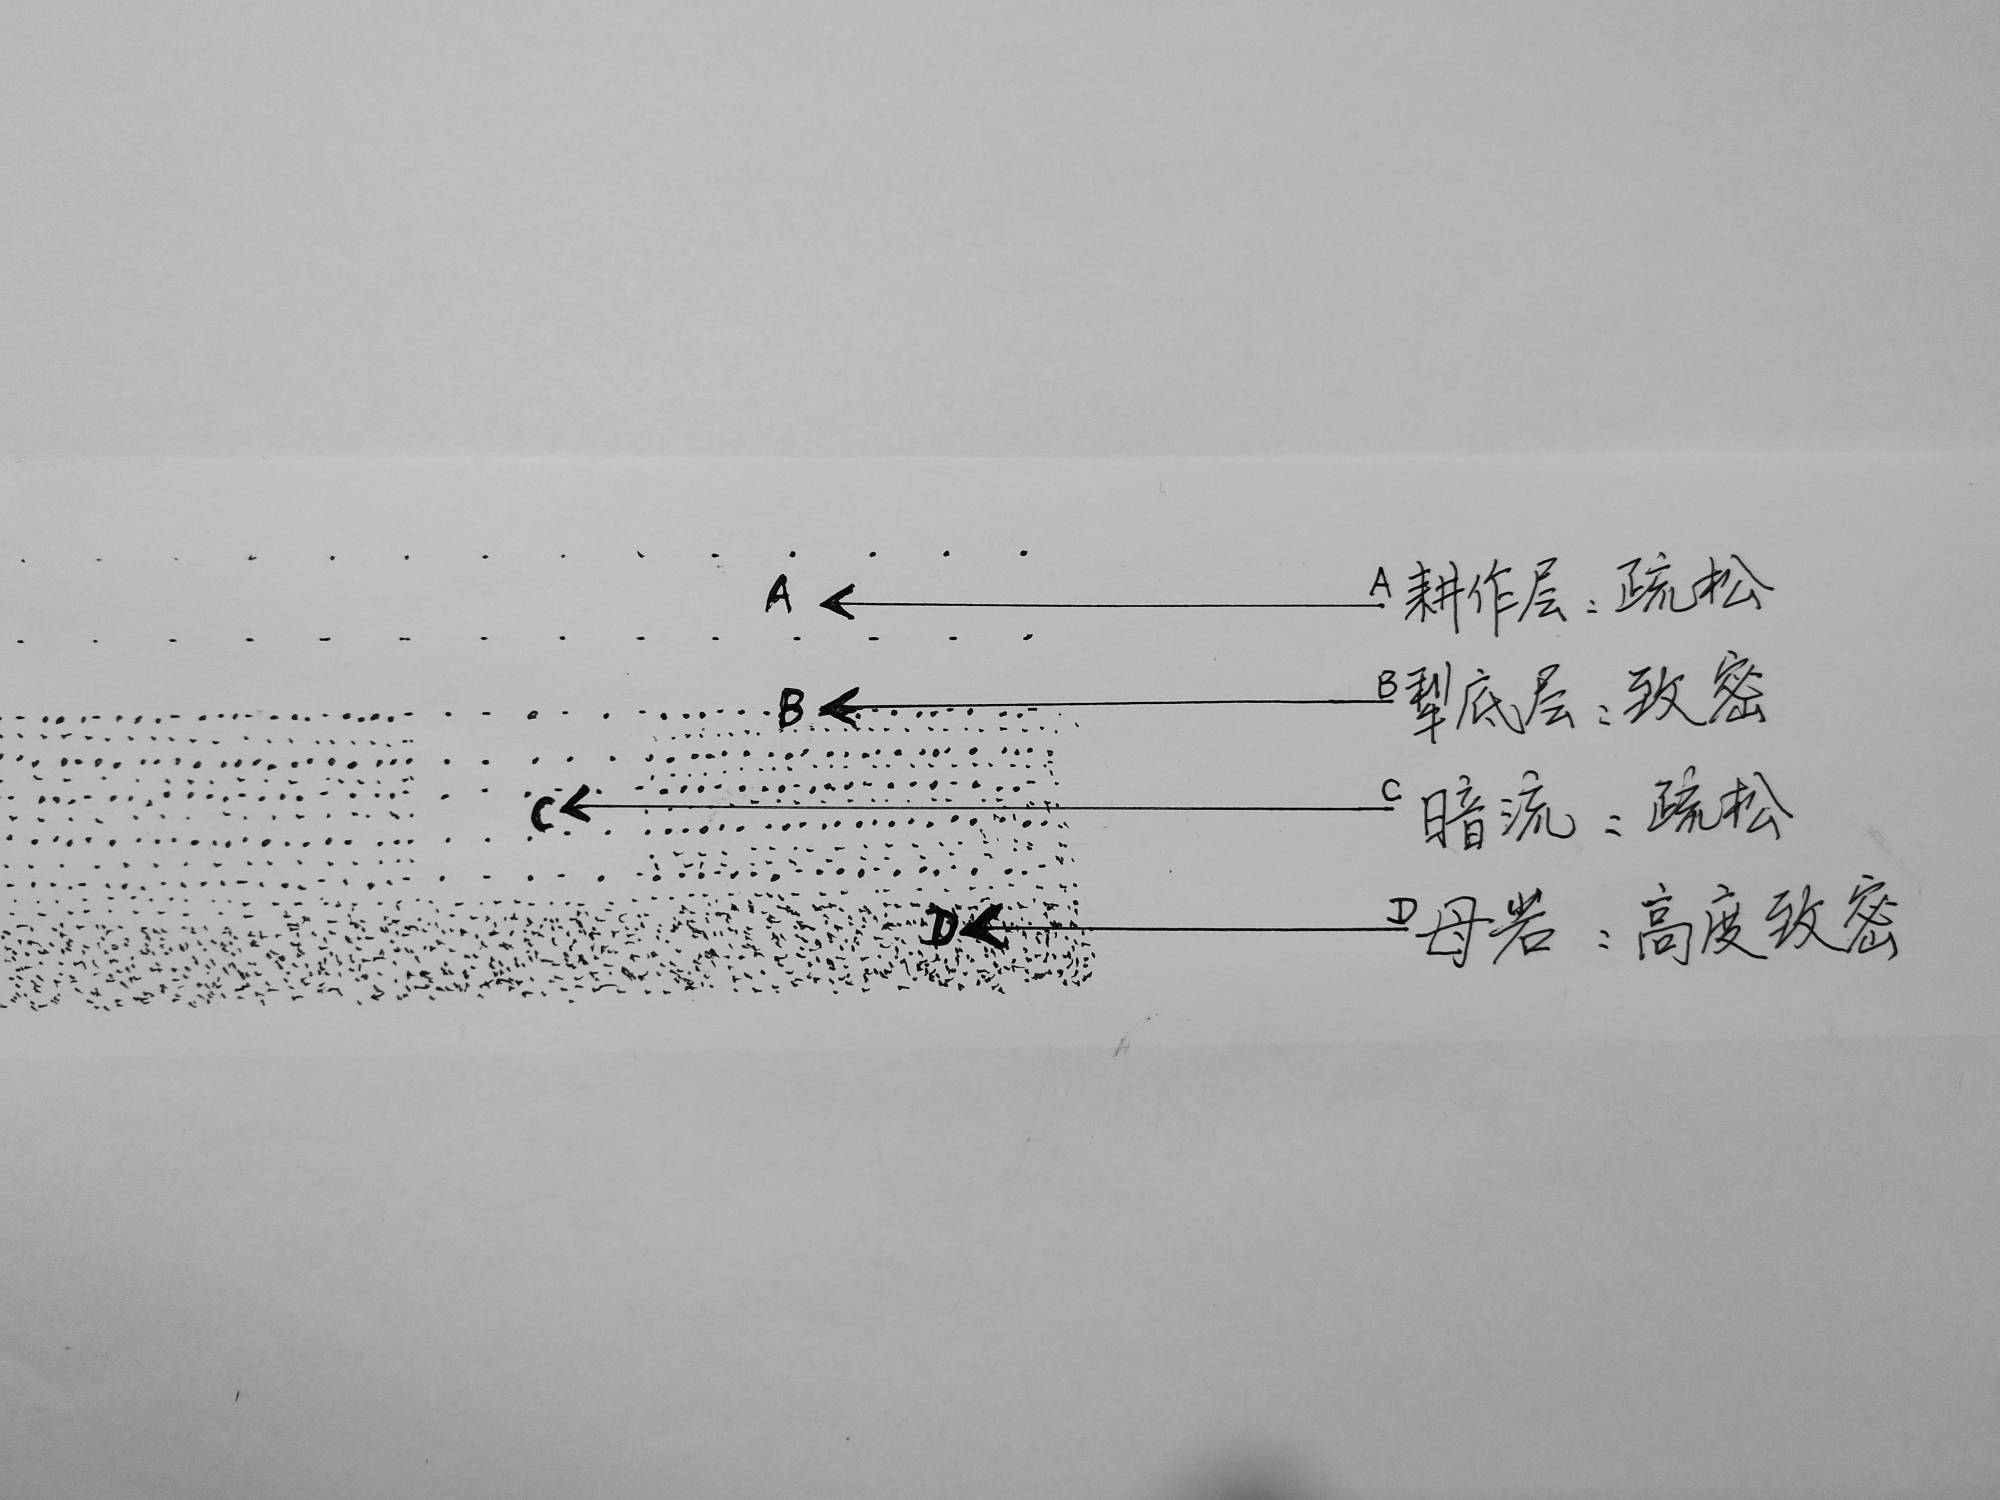 A A 耕作层：疏松
B B 犁底层：致密
C C 暗流：疏松
D D 母岩：高度致密